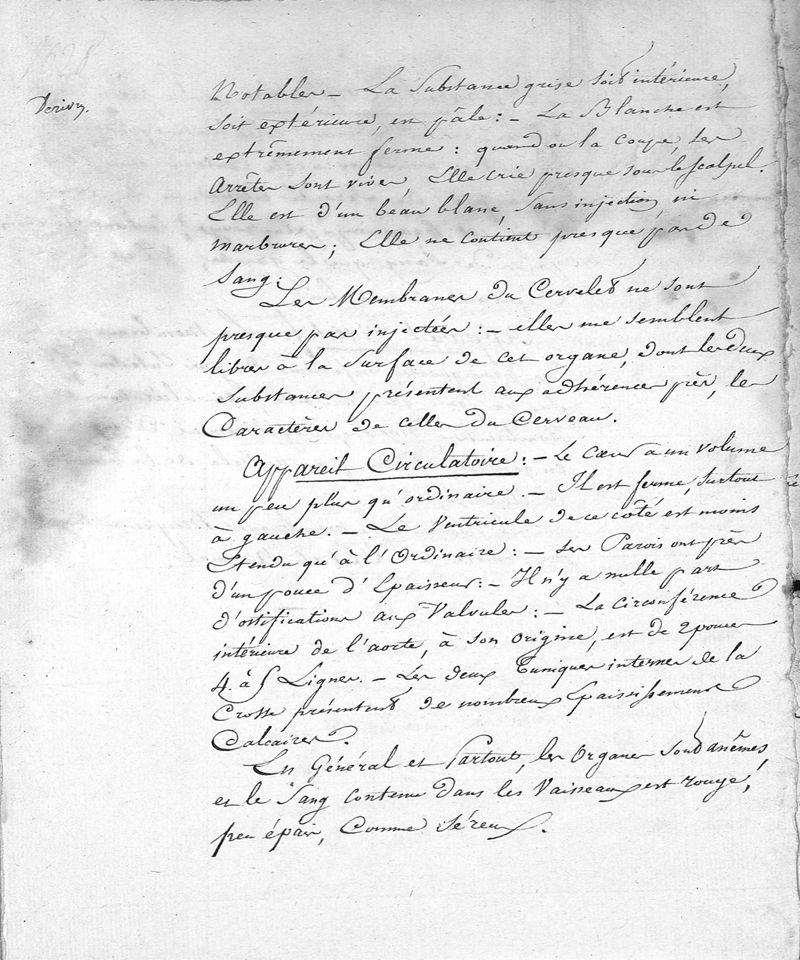 Notables — La Substance grise soit intérieure,
soit extérieure, est pâle : — La Blanche est
extrêmement ferme : quand on la coupe, les
Arrêtes sont vives, Elle crie presque sous le scalpel.
Elle est d'un beau blanc, sans injection, ni
marbrures ; Elle ne contient presque pas de
Sang.
Les Membranes du Cervelet ne sont
presque pas injectées : — elles me semblent
libres à la surface de cet organe, dont les deux
Substances présentent aux adhérences près, les
Caractères de celles du Cerveau.
Appareil Circulatoire : — Le cœur a un volume
un peu plus qu'ordinaire. — Il est ferme, surtout
à gauche. — Le Ventricule de ce côté est moins
Etendu qu'à l'Ordinaire : — ses Parois ont près
d'un pouce d'Epaisseur : — Il n'y a nulle part
d'ossifications aux Valvules : — La circonférence
intérieure de l'aorte, à son origine, est de 2 pouces
4 à 5 Lignes. — Les deux Tuniques internes de la
Crosse présentent de nombreux Epaississements
Calcaires.
En Général et Partout, les Organes sont anêmes,
et le Sang contenu dans les Vaisseaux est rouge,
peu épais, Comme séreux.